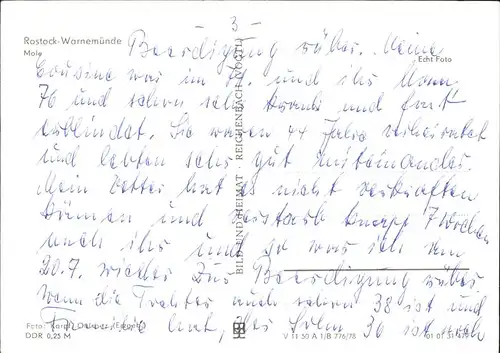 - 3 -
Rostock-Warnemünde
Mole
Echt Foto
Beerdigung rüber. Meine
Cousine war im 74 und ihr Mann
76 und schon sehr krank und fast
erblindet. Sie waren 44 Jahre verheiratet
und lebten sehr gut miteinander.
Mein Vetter hat es nicht verkraften
können und verstarb knapp 7 Wochen
nach ihr und so war ich am
20.7. wieder zur Beerdigung rüber
wenn die Tochter auch schon 38 ist und
Familie hat, der Sohn 30 ist
BILD UND HEIMAT · REICHENBACH (VOGTL)
Foto:
DDR 0,25 M
V 11 50 A 1/B 776/78
01 01